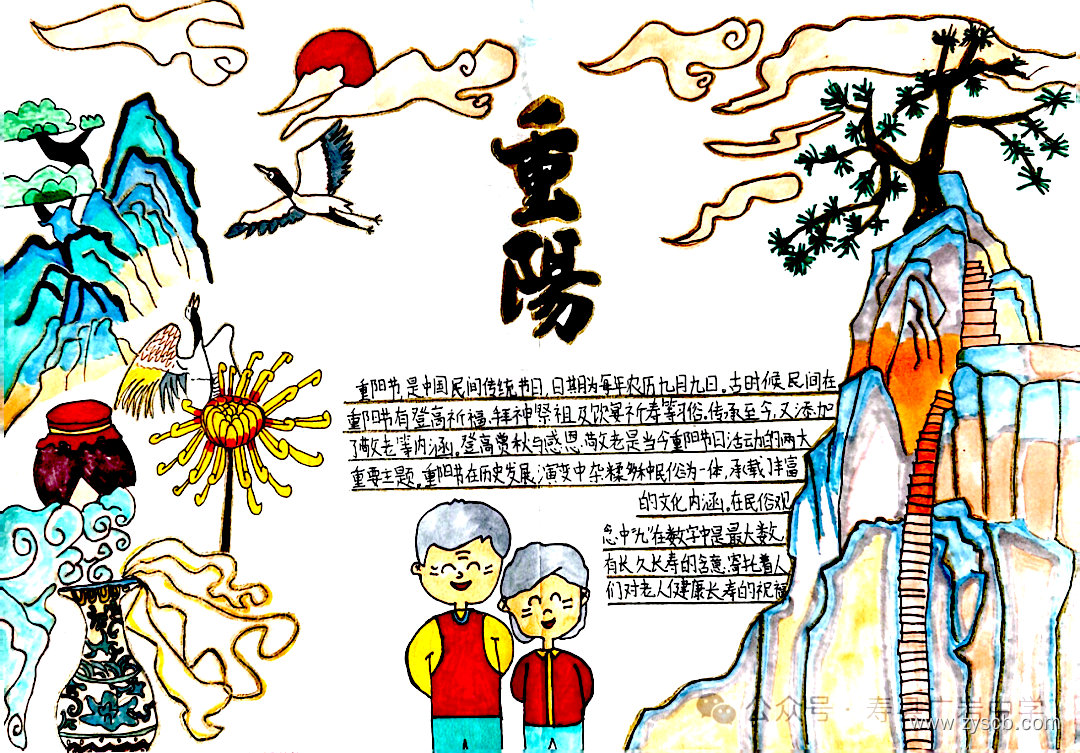 重陽
重阳节,是中国民间传统节日,日期为每年农历九月九日。古时候民间在
重阳节有登高祈福、拜神祭祖及饮宴祈寿等习俗。传承至今,又添加
了敬老等内涵。登高赏秋与感恩敬老是当今重阳节日活动的两大
重要主题。重阳节在历史发展演变中杂糅多种民俗为一体,承载了丰富
的文化内涵。在民俗观
念中“九”在数字中是最大数,
有长久长寿的含意,寄托着人
们对老人健康长寿的祝福
公众号·寿
www.zyscb.com